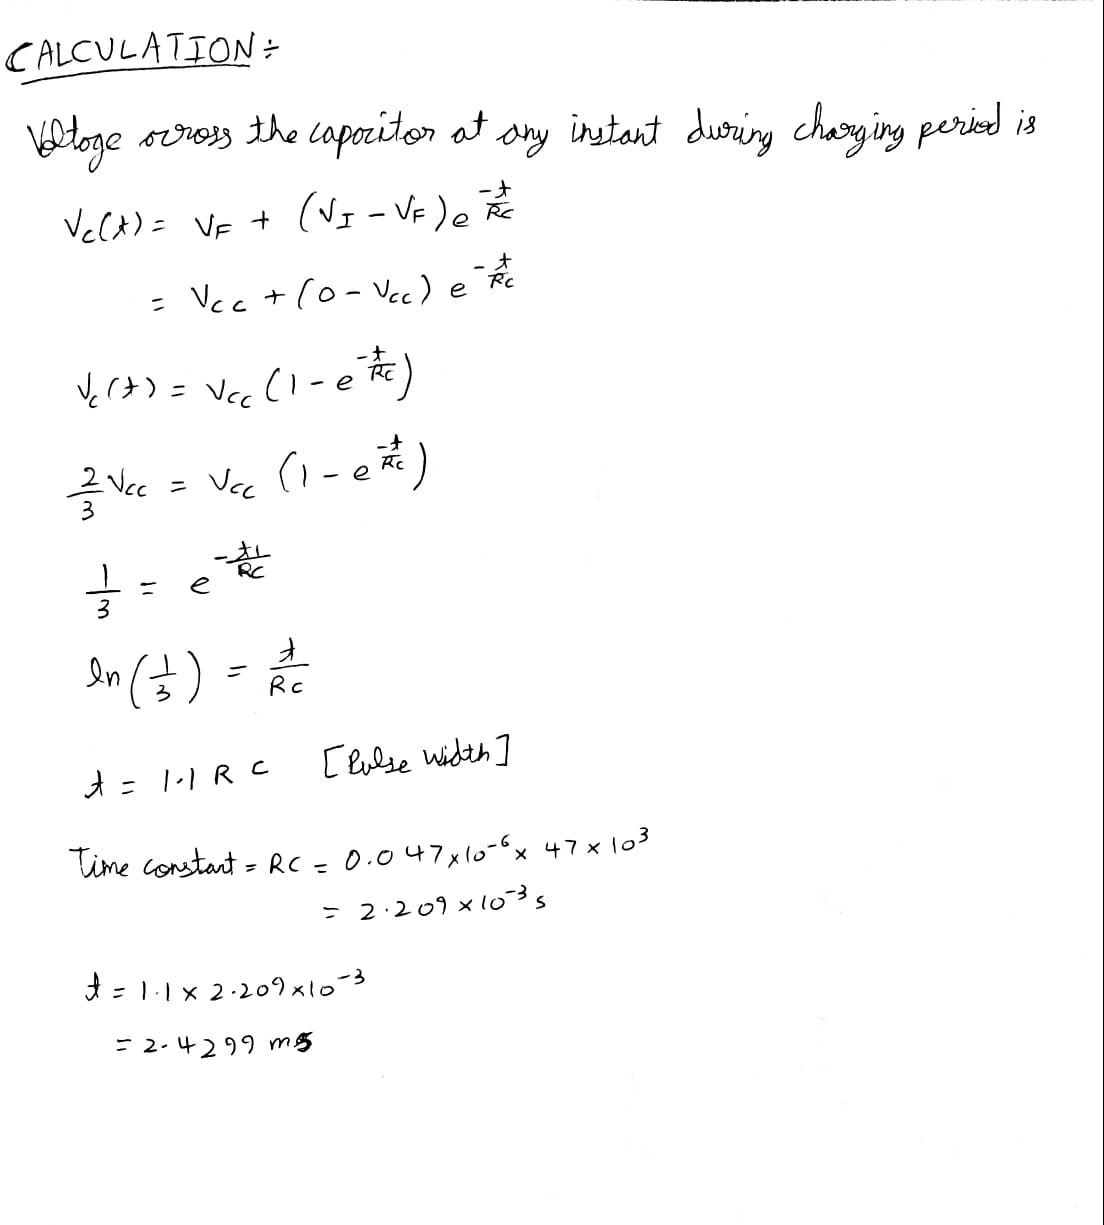 CALCULATION ÷
Voltage across the capacitor at any instant during charging period is
Vc(t) = VF + (VI - VF) e^(-t/RC)
= Vcc + (0 - Vcc) e^(-t/RC)
Vc(t) = Vcc (1 - e^(-t/RC))
2/3 Vcc = Vcc (1 - e^(-t/RC))
1/3 = e^(-t1/RC)
ln(1/3) = t/RC
t = 1.1 R C [Pulse width]
Time constant = RC = 0.047 x 10^-6 x 47 x 10^3
= 2.209 x 10^-3 s
t = 1.1 x 2.209 x 10^-3
= 2.4299 ms